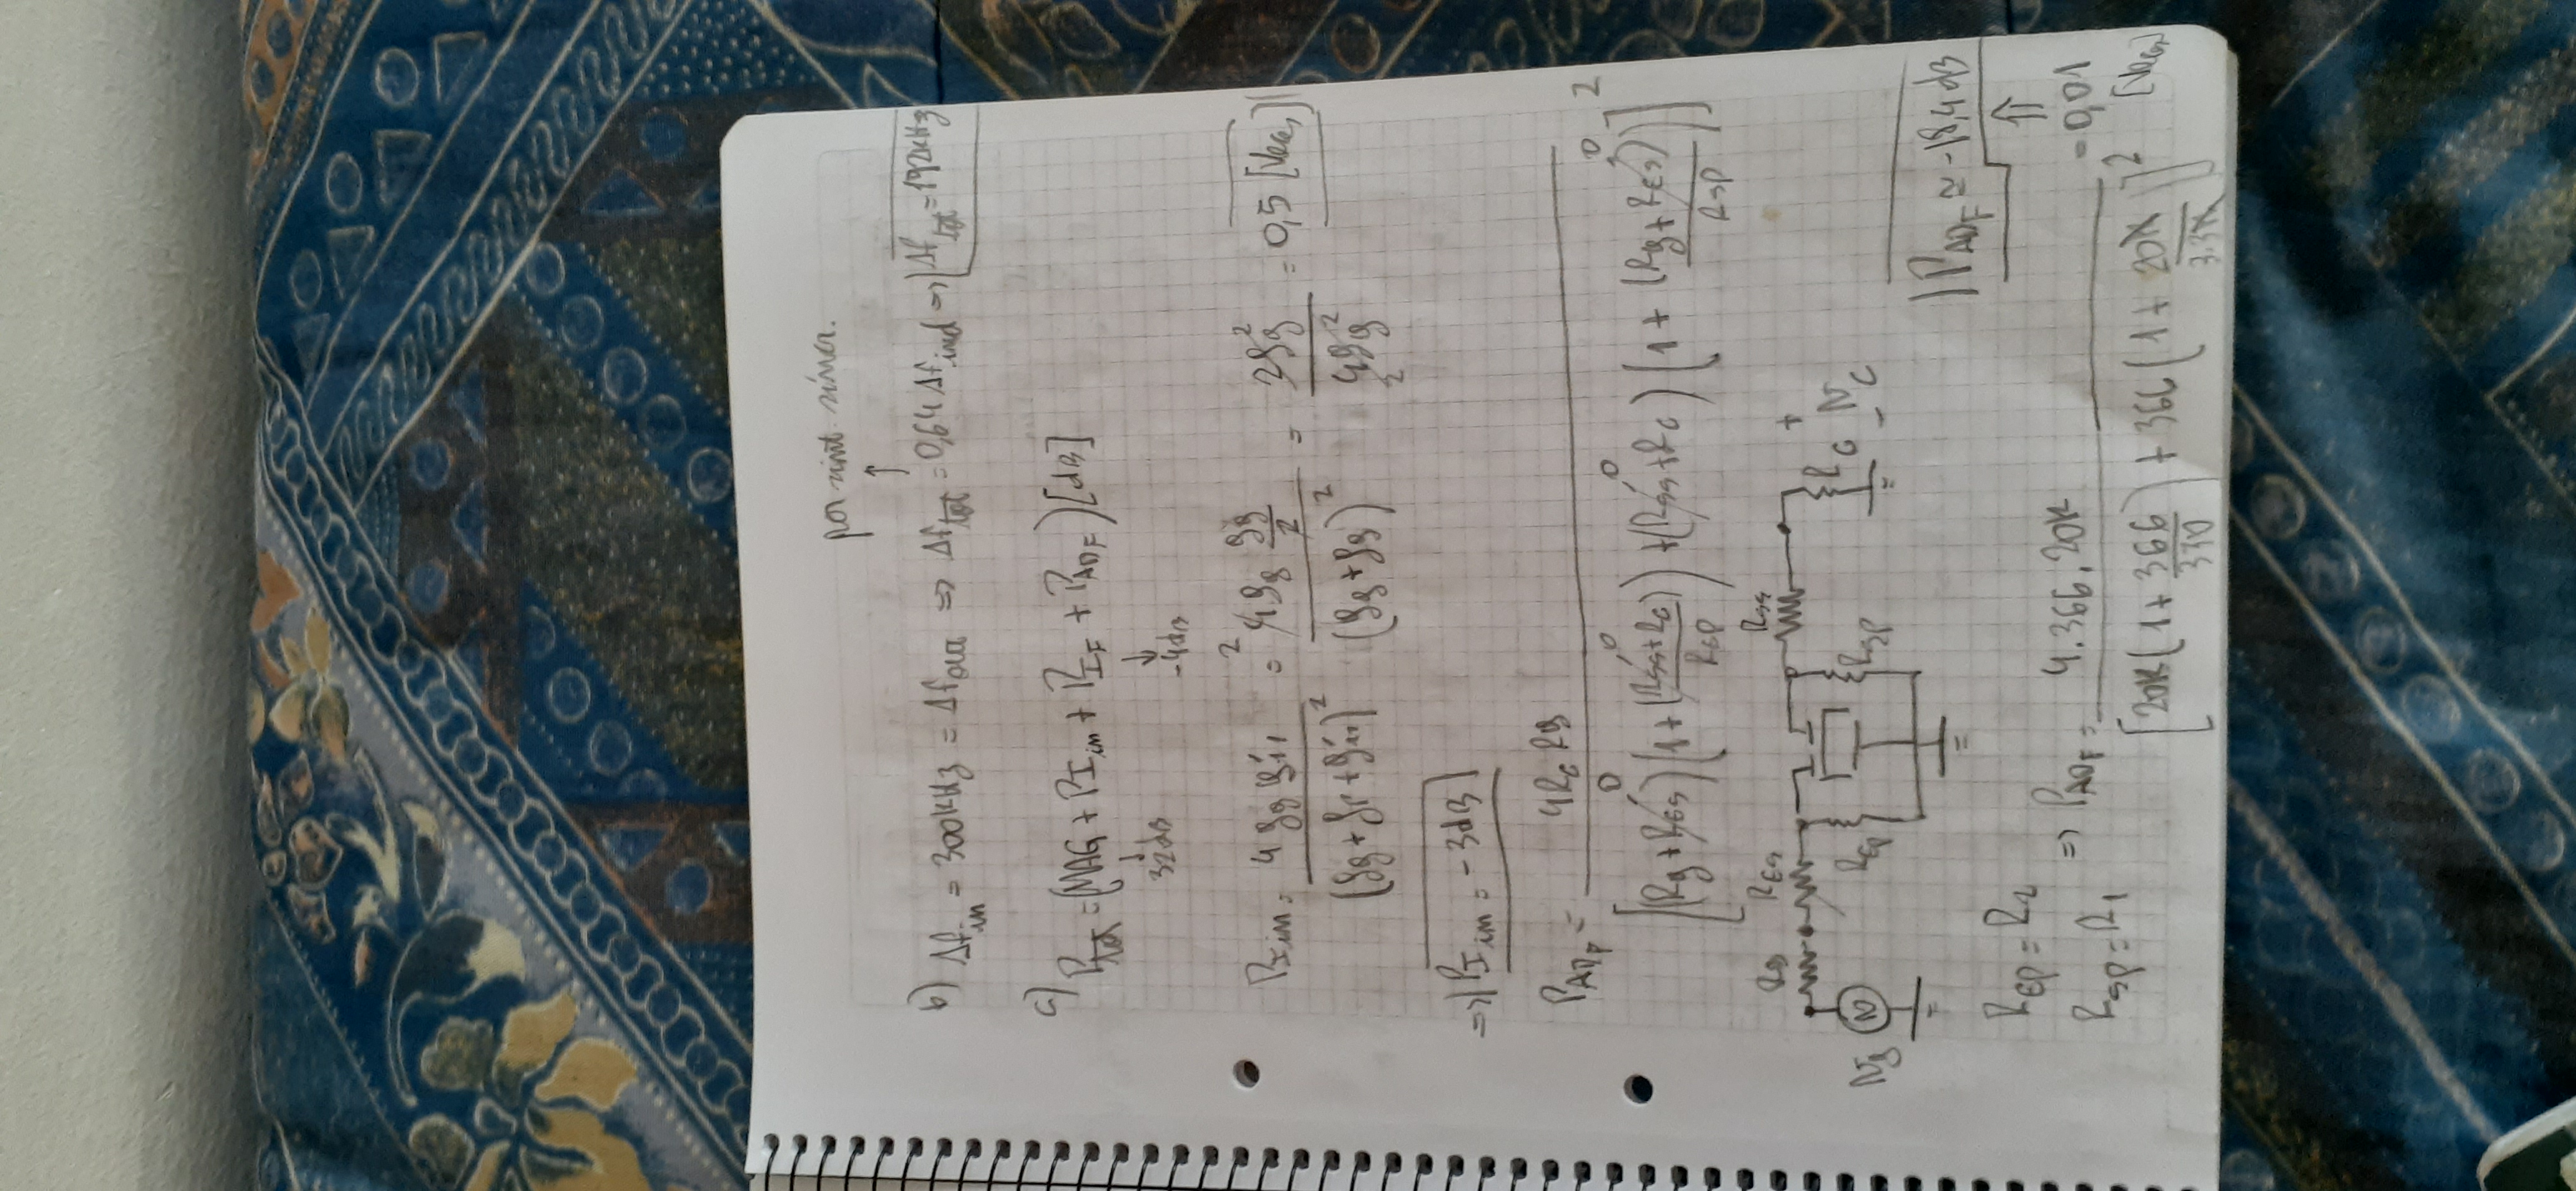 por sint. sincr.
↑
b) Δf_in = 300kHz = Δf_out ⇒ Δf_tot = 0,64 Δf_ind ⇒ Δf_tot = 192kHz
c) P_tot = (MAG + PI_in + P_IF + P_ADF) [dB]
↓ 32dB ↓ -4dB
P_Iin = 4 gg gii / (gg + gp + gii)² = 4gg gg/2 / (gg + gg)² = 2gg² / 4gg² = 0,5 [Veces]
⇒ P_Iin = -3dB
P_ADF = 4Rc Rg / [(Rg + RES)(1 + (RSS + Rc)/REP) + (RSS + Rc)(1 + (Rg + RES)/RSP)]²
Rg RES RSS
Vg REP RSP Rc + Vc -
P_ADF ≃ -18,4dB
⇑
REP = R2
RSP = R1
⇒ P_ADF = 4.366.20K / [20K(1 + 366/330) + 366(1 + 20K/3.3K)]² = 0,01 [Veces]